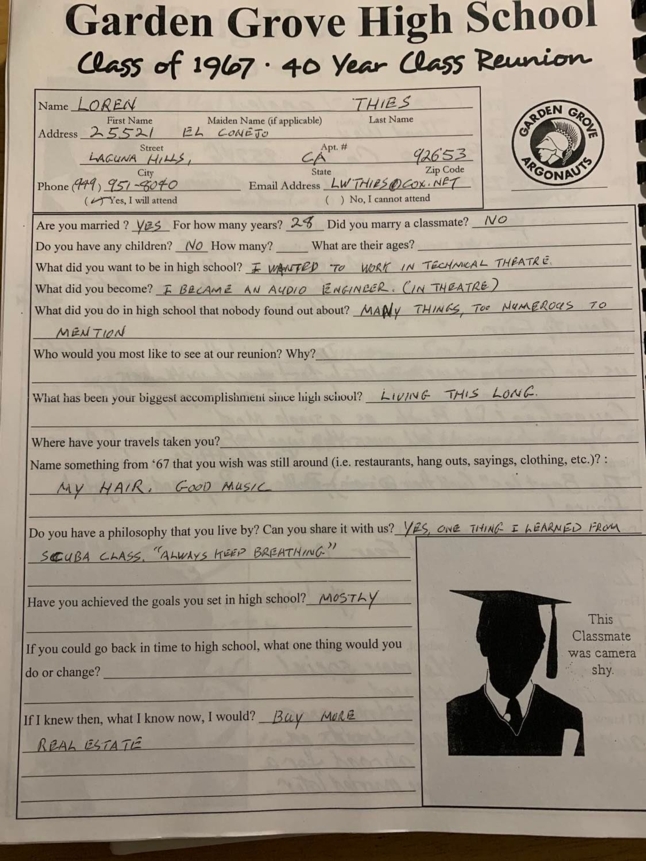 Garden Grove High School
Class of 1967 · 40 Year Class Reunion
Name LOREN THIES
First Name Maiden Name (if applicable) Last Name
Address 25521 EL CONEJO
Street Apt. #
LAGUNA HILLS, CA 92653
City State Zip Code
Phone (949) 951-8040 Email Address LWTHIES@COX.NET
(✓) Yes, I will attend ( ) No, I cannot attend
GARDEN GROVE
ARGONAUTS
Are you married ? YES For how many years? 28 Did you marry a classmate? NO
Do you have any children? NO How many? What are their ages?
What did you want to be in high school? I WANTED TO WORK IN TECHNICAL THEATRE.
What did you become? I BECAME AN AUDIO ENGINEER. (IN THEATRE)
What did you do in high school that nobody found out about? MANY THINGS, TOO NUMEROUS TO
MENTION
Who would you most like to see at our reunion? Why?
What has been your biggest accomplishment since high school? LIVING THIS LONG.
Where have your travels taken you?
Name something from '67 that you wish was still around (i.e. restaurants, hang outs, sayings, clothing, etc.)? :
MY HAIR, GOOD MUSIC
Do you have a philosophy that you live by? Can you share it with us? YES, ONE THING I LEARNED FROM
SCUBA CLASS, "ALWAYS KEEP BREATHING"
Have you achieved the goals you set in high school? MOSTLY
If you could go back in time to high school, what one thing would you
do or change?
If I knew then, what I know now, I would? BUY MORE
REAL ESTATE
This
Classmate
was camera
shy.